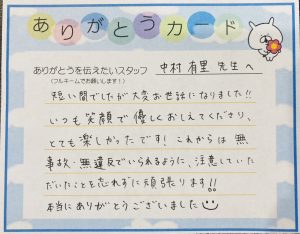 ありがとうカード
ありがとうを伝えたいスタッフ
(フルネームでお願いします!)
中村 有里 先生へ
短い間でしたが大変お世話になりました!!
いつも笑顔で優しくおしえてくださり、
とても楽しかったです!これからは無
事故、無違反でいられるように、注意していた
だいたことを忘れずに頑張ります!!
本当にありがとうございました